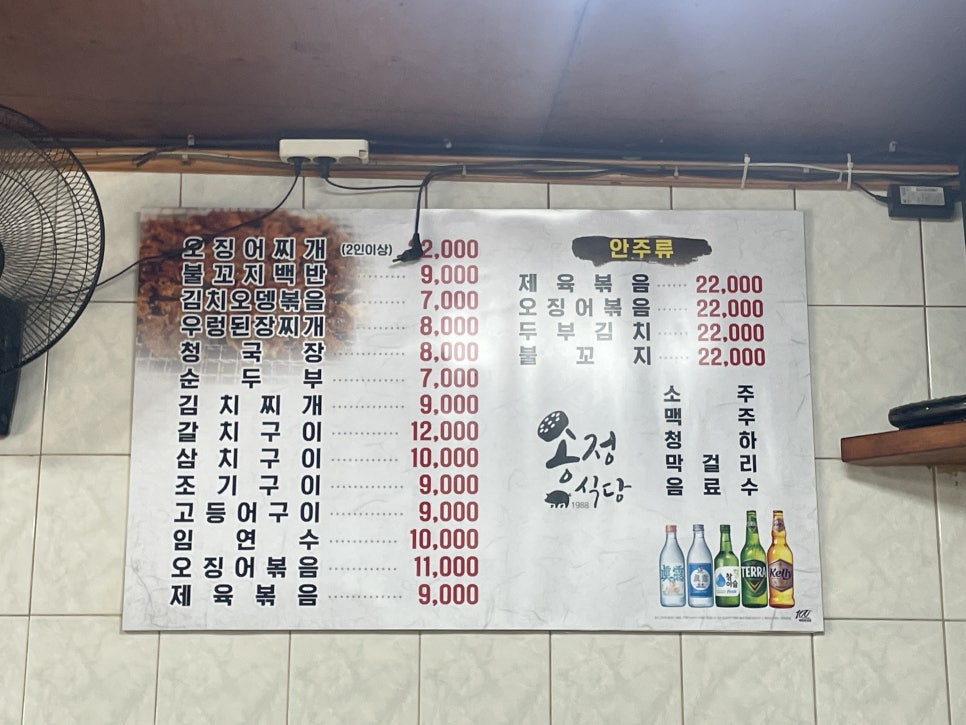 오징어찌개 (2인이상) 2,000
불꼬지백반 9,000
김치오뎅볶음 7,000
우렁된장찌개 8,000
청국장 8,000
순두부 7,000
김치찌개 9,000
갈치구이 12,000
삼치구이 10,000
조기구이 9,000
고등어구이 9,000
임연수 10,000
오징어볶음 11,000
제육볶음 9,000
안주류
제육볶음 22,000
오징어볶음 22,000
두부김치 22,000
불꼬지 22,000
소주
맥주
청하
막걸리
음료수
송정
식당
1988
참이슬
TERRA
Kelly
100